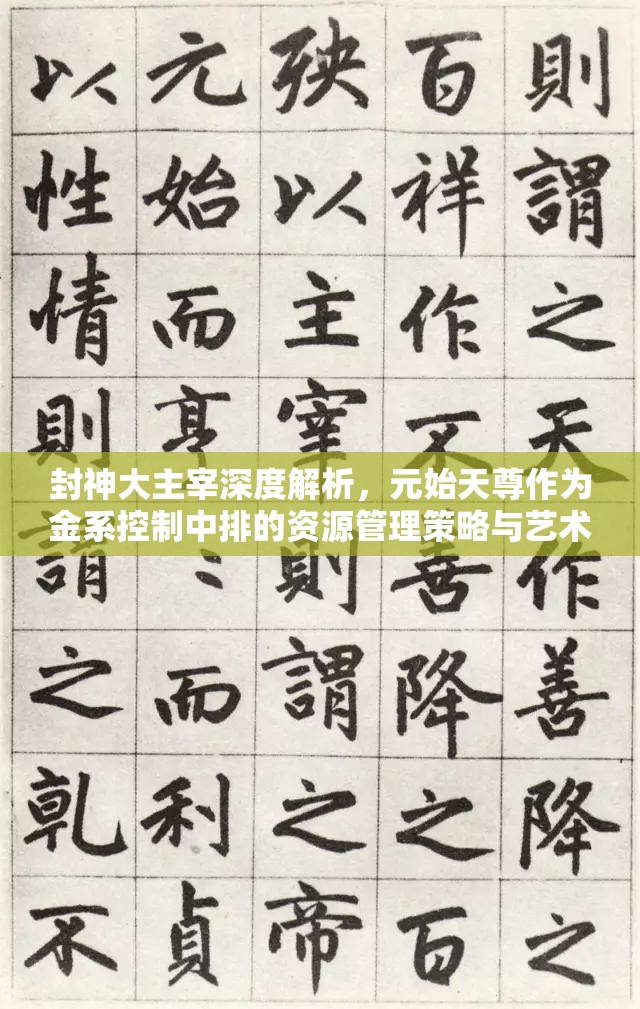 則謂之天作善降之
百祥作不善降之百
殃以主宰則謂之帝
元始而亨〻而利貞
以性情則謂之乹不
封神大主宰深度解析，元始天尊作为
金系控制中排的资源管理策略与艺术